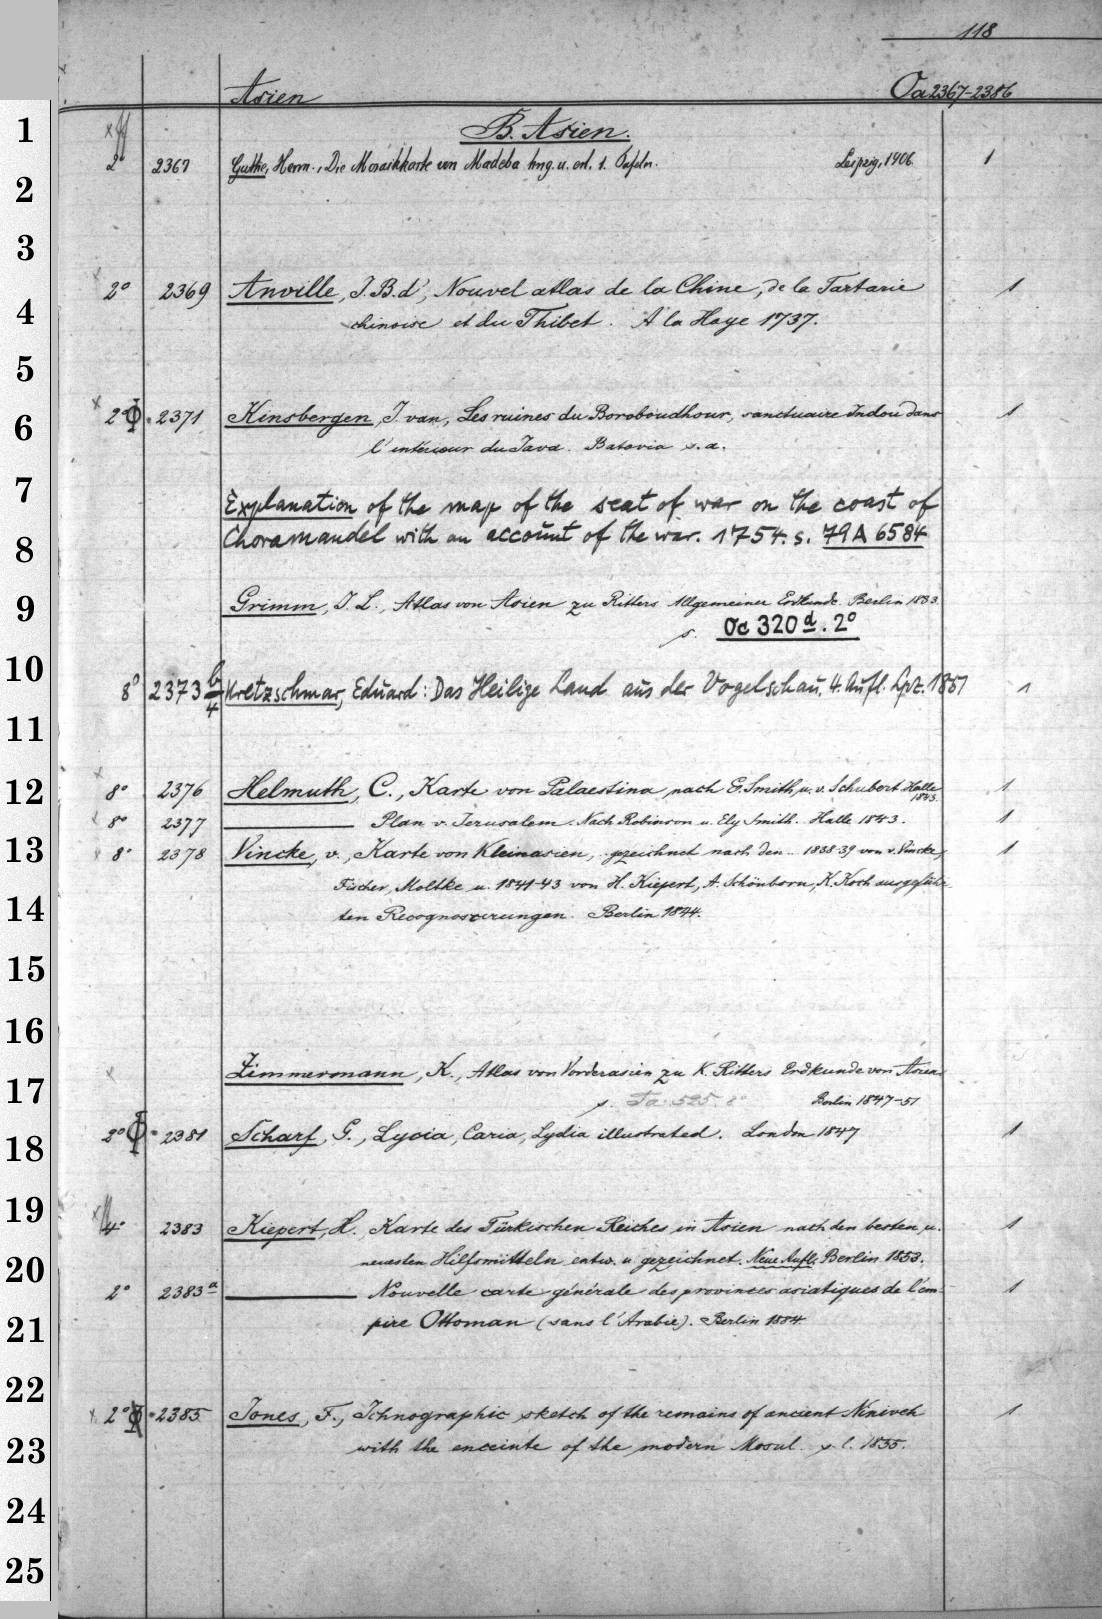 118
Asien Oa 2367-2386
B. Asien.
2° 2367 Guthe, Herm., Die Mosaikkarte von Madeba hrsg. u. erl. 1. Tafeln. Leipzig, 1906. 1
2° 2369 Anville, J. B. d', Nouvel atlas de la Chine, de la Tartarie 1
chinoise et du Thibet. A la Haye 1737.
2° Φ 2371 Kinsbergen, J. van, Les ruines du Boroboudhour, sanctuaire Indou dans 1
l'intérieur du Java. Batavia s. a.
Explanation of the map of the seat of war on the coast of
Choramandel with an account of the war. 1754. s. 79A 6584
Grimm, J. L., Atlas von Asien zu Ritters Allgemeiner Erdkunde. Berlin 1833.
s. Oc 320 d. 2°
8° 2373 b/4 Kretzschmar, Eduard: Das Heilige Land aus der Vogelschau. 4. Aufl. Lpz. 1851 1
8° 2376 Helmuth, C., Karte von Palaestina nach E. Smith, u. v. Schubert Halle 1
1843.
8° 2377 ——— Plan v. Jerusalem. Nach Robinson u. Ely Smith. Halle 1843. 1
8° 2378 Vincke, v., Karte von Kleinasien, gezeichnet nach den .. 1838-39 von v. Vincke, 1
Fischer, Moltke u. 1841-43 von H. Kiepert, A. Schönborn, K. Koch ausgeführ-
ten Recognoscirungen. Berlin 1844.
Zimmermann, K., Atlas von Vorderasien zu K. Ritters Erdkunde von Asien.
s. Fa 525. 8° Berlin 1847-51
2° Φ 2381 Scharf, G., Lycia, Caria, Lydia illustrated. London 1847 1
4° 2383 Kiepert, H. Karte des Türkischen Reiches in Asien nach den besten u. 1
neuesten Hilfsmitteln entw. u gezeichnet. Neue Aufl. Berlin 1853.
2° 2383 a ——— Nouvelle carte générale des provinces asiatiques de l'em- 1
pire Ottoman (sans l'Arabie). Berlin 1884.
2° Φ 2385 Jones, F., Ichnographic sketch of the remains of ancient Nineveh 1
with the enceinte of the modern Mosul. s. l. 1855.
1
2
3
4
5
6
7
8
9
10
11
12
13
14
15
16
17
18
19
20
21
22
23
24
25